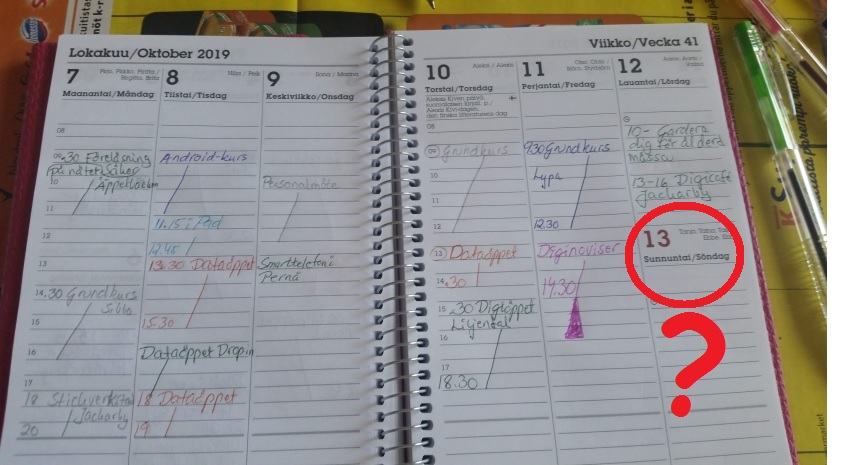 Lokakuu/Oktober 2019
7
Maanantai/Måndag
08
09.30 Föreläsning
på nätet säker
10
Äppelbacken
11
13
14.30 Grundkurs
Sibbo
15
16
17
18 Stickverkstad
Jackarby
20
8
Tiistai/Tisdag
Android-kurs
11.15 iPad
12.45
13.30 Dataöppet
15.30
Dataöppet Dropin
18 Dataöppet
19
9
Keskiviikko/Onsdag
Personalmöte
Smarttelefoni
Pernå
Viikko/Vecka 41
10
Aleksi / Alexis
Torstai/Torsdag
Aleksis Kiven päivä,
08
09 Grundkurs
10
11
12
13 Dataöppet
14.30
15.30 Digiöppet
Liljendal
16
17
18.30
11
Perjantai/Fredag
9.30 Grundkurs
Lypa
12.30
Diginoviser
14.30
12
Lauantai/Lördag
10- Gardera
dig för ålderd
mässa
13-16 Digicafé
Jackarby
13
Sunnuntai/Söndag
?